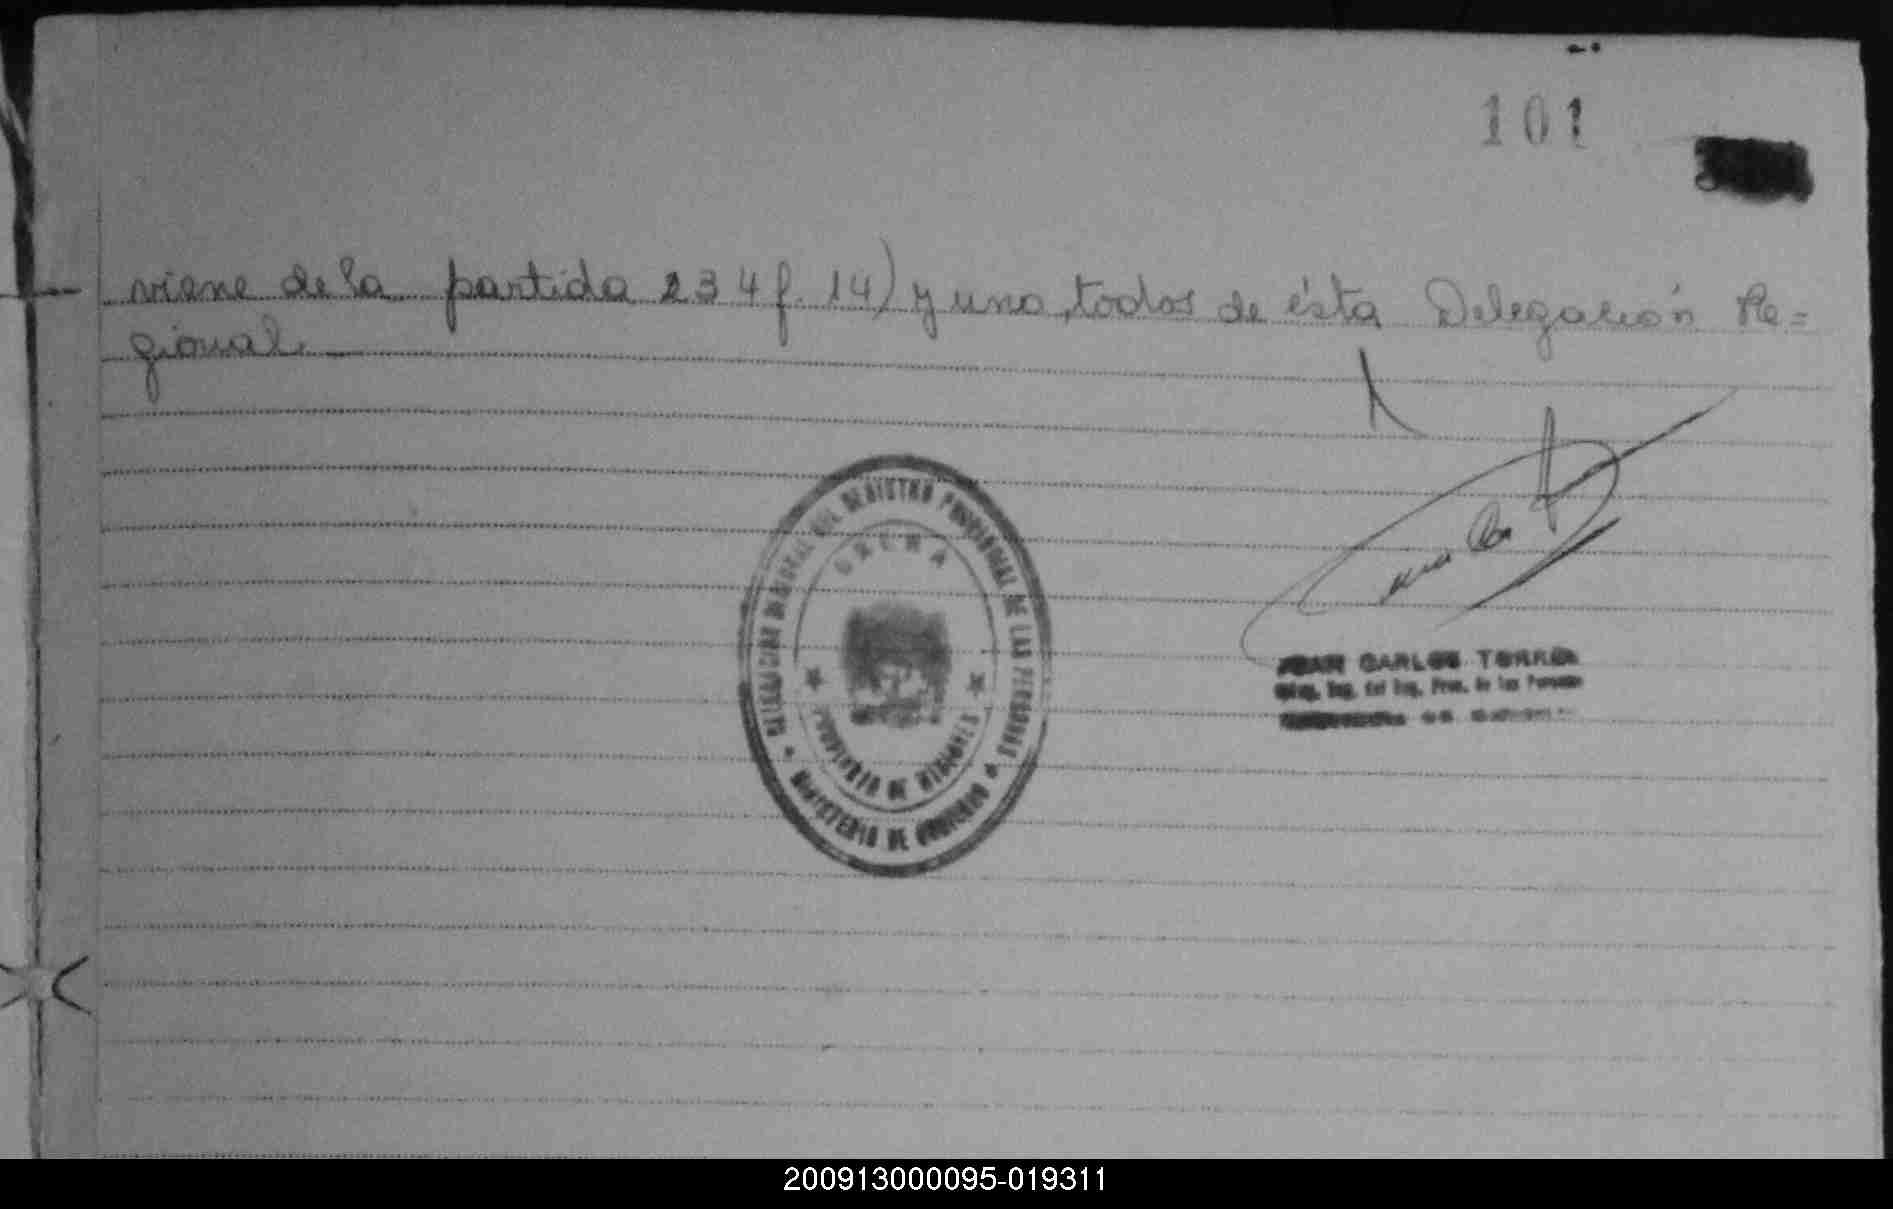 101
viene de la partida 234 f. 14) y uno, todos de ésta Delegación Re=
gional.
DELEGACION REGIONAL DEL REGISTRO PROVINCIAL DE LAS PERSONAS
OBERA
PROVINCIA DE MISIONES
MINISTERIO DE GOBIERNO
JUAN CARLOS TORRES
Deleg. Reg. del Reg. Prov. de las Personas
200913000095-019311